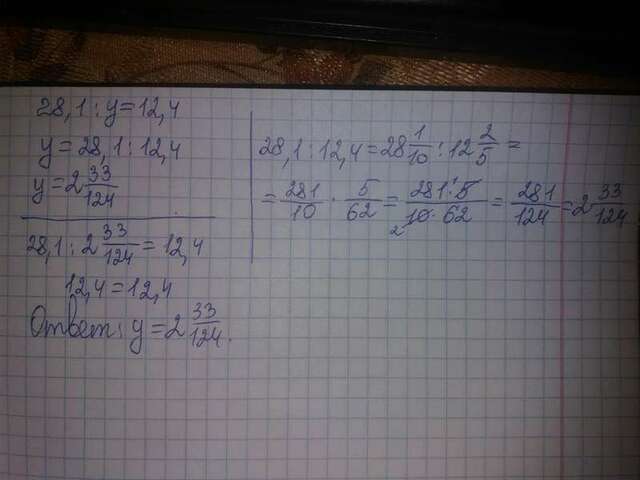 28,1 : y = 12,4
y = 28,1 : 12,4
y = 2 33/124
28,1 : 2 33/124 = 12,4
12,4 = 12,4
Ответ: y = 2 33/124.
28,1 : 12,4 = 28 1/10 : 12 2/5 =
= 281/10 · 5/62 = 281·5 1/10·62 2 = 281/124 = 2 33/124